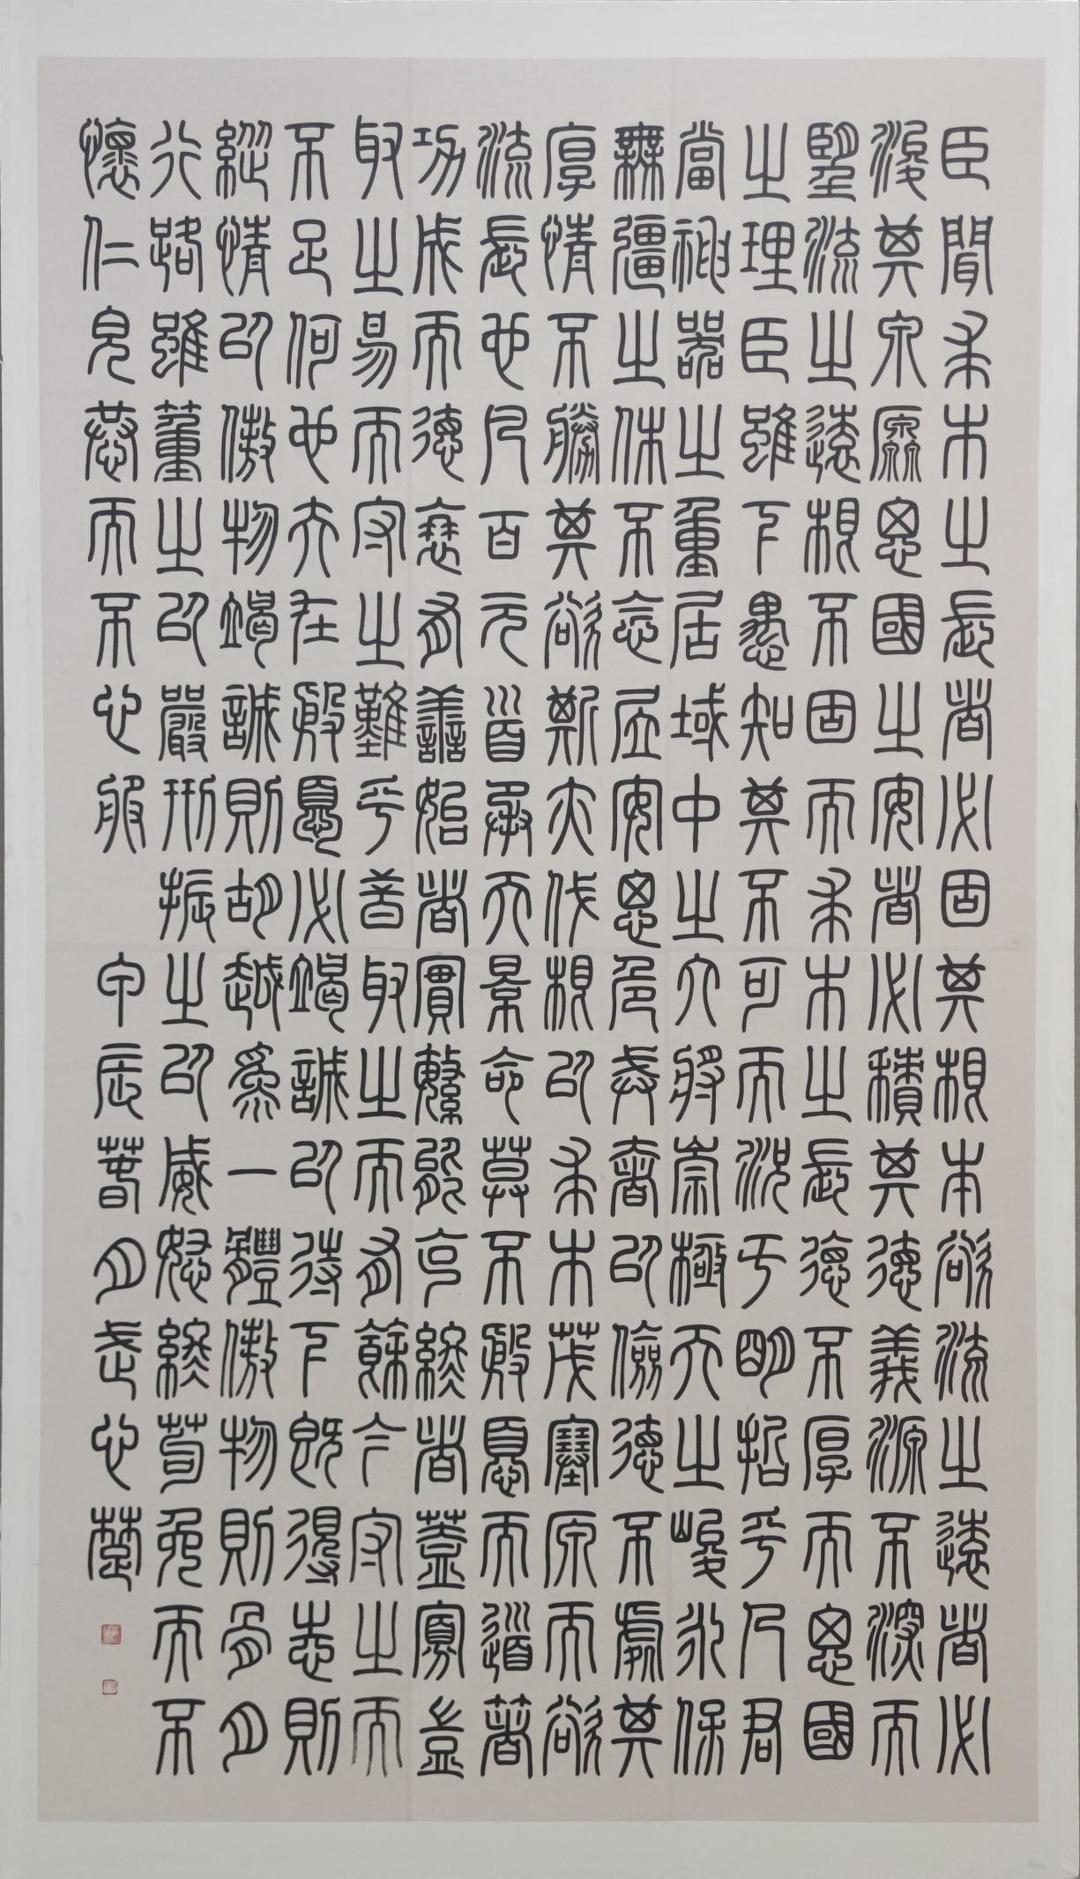 臣聞求木之長者必固其根本欲流之遠者必
浚其泉原思國之安者必積其德義源不深而
望流之遠根不固而求木之長德不厚而思國
之理臣雖下愚知其不可而況于明哲乎人君
當神器之重居域中之大將崇極天之峻永保
無疆之休不念居安思危戒奢以儉德不處其
厚情不勝其欲斯亦伐根以求木茂塞原而欲
流長也凡百元首承天景命莫不殷憂而道著
功成而德衰有善始者實繁能克終者蓋寡豈
取之易而守之難乎昔取之而有餘今守之而
不足何也夫在殷憂必竭誠以待下既得志則
縱情以傲物竭誠則胡越為一體傲物則骨肉
行路雖董之以嚴刑振之以威怒終苟免而不
懷仁皃恭而不心服 甲辰春月